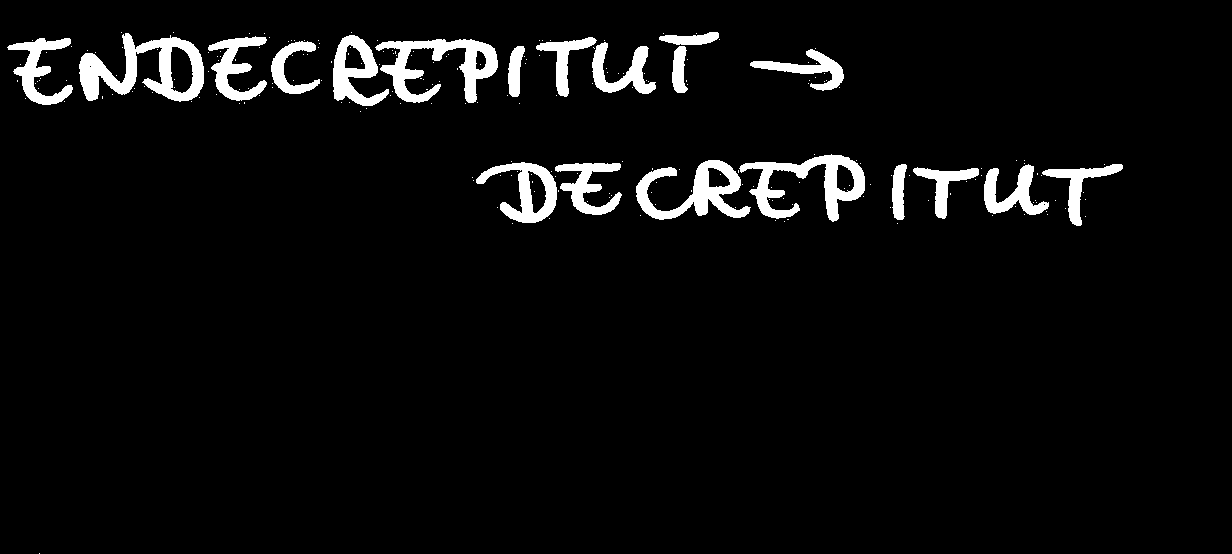 ENDECREPITUT →
DECREPITUT